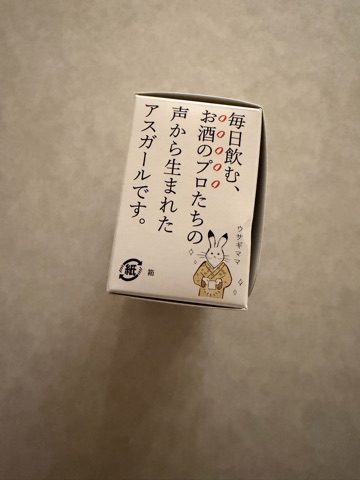 毎日飲む、
お酒のプロたちの
声から生まれた
アスガールです。
ウサギママ
紙
箱